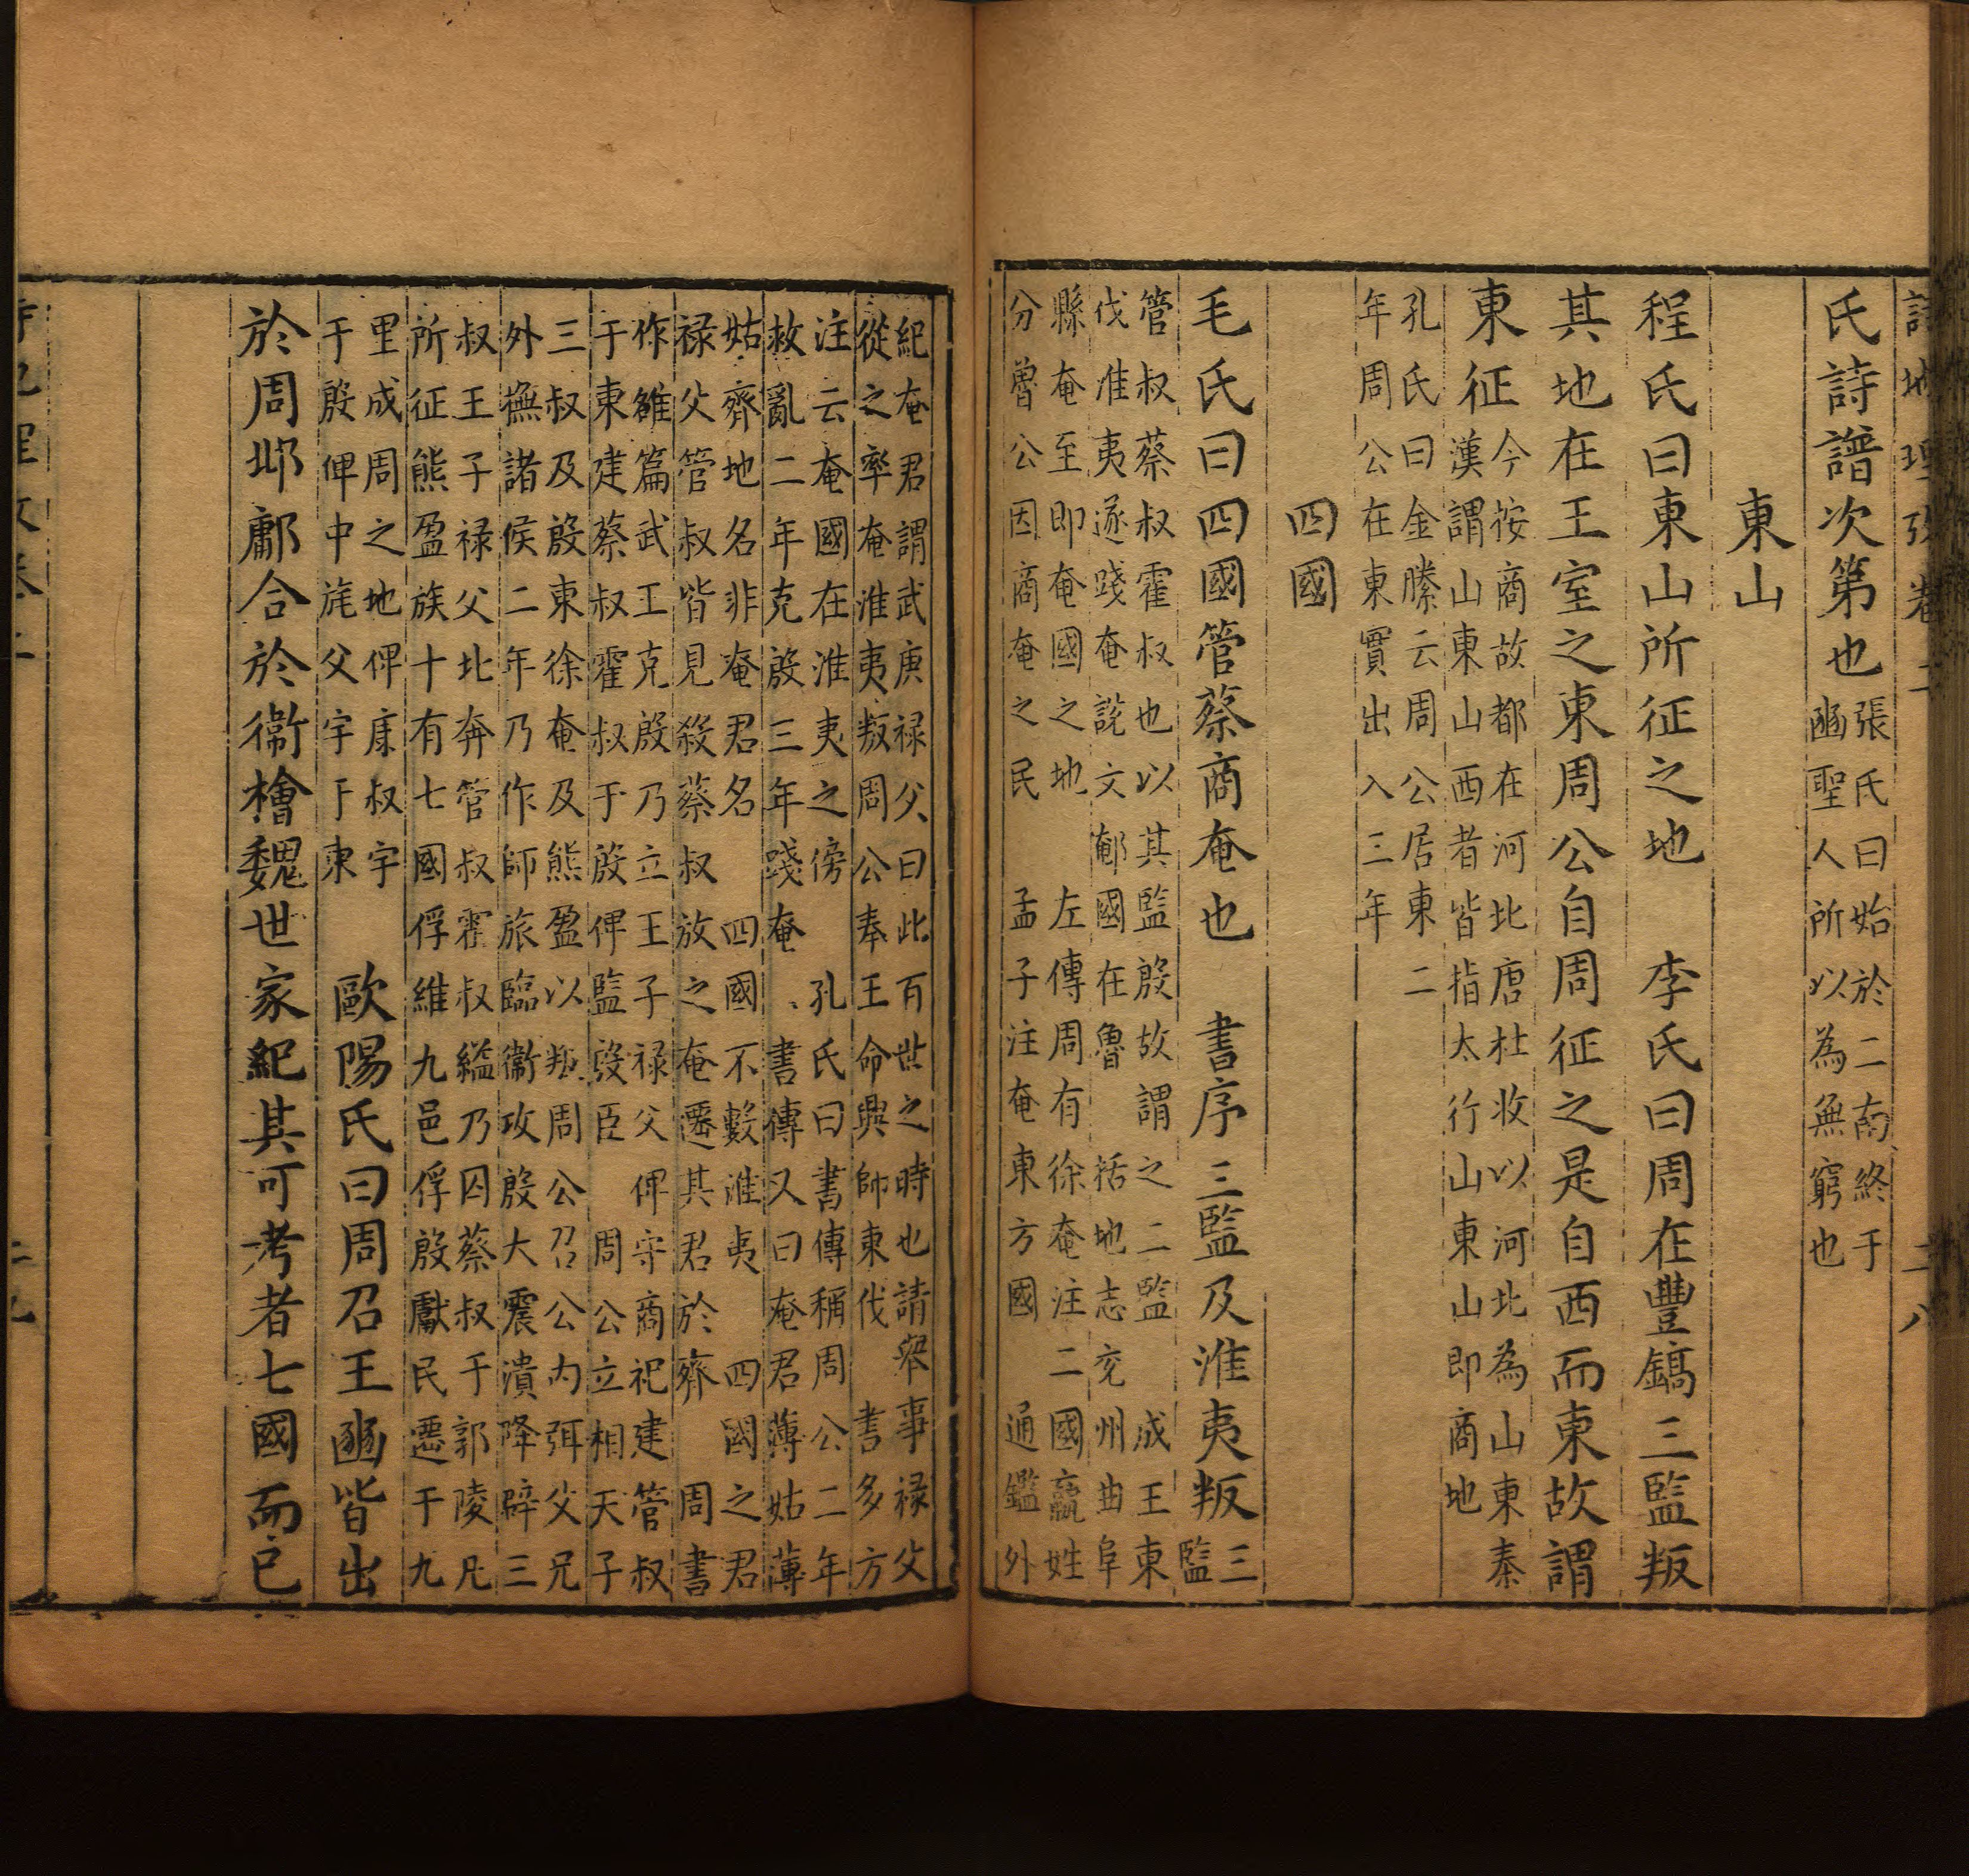 詩地理攷卷二 二八
氏詩譜次第也
張氏曰始於二南終于
豳聖人所以為無窮也
東山
程氏曰東山所征之地 李氏曰周在豐鎬三監叛
其地在王室之東周公自周征之是自西而東故謂
東征
今按商故都在河北唐杜牧以河北為山東秦
漢謂山東山西者皆指太行山東山即商地
孔氏曰金縢云周公居東二
年周公在東實出入三年
四國
毛氏曰四國管蔡商奄也 書序三監及淮夷叛
三
監
管叔蔡叔霍叔也以其監殷故謂之二監 成王東
伐淮夷遂踐奄說文䣍國在魯 括地志兖州曲阜
縣奄至即奄國之地 左傳周有徐奄注二國嬴姓
分魯公因商奄之民 孟子注奄東方國 通鑑外
紀奄君謂武庚祿父曰此百世之時也請舉事祿父
從之率奄淮夷叛周公奉王命興師東伐 書多方
注云奄國在淮夷之傍 孔氏曰書傳稱周公二年
救亂二年克殷三年踐奄 書傳又曰奄君薄姑薄
姑齊地名非奄君名 四國不數淮夷 四國之君
祿父管叔皆見殺蔡叔放之奄遷其君於齊 周書
作雒篇武王克殷乃立王子祿父俾守商祀建管叔
于東建蔡叔霍叔于殷俾監殷臣 周公立相天子
三叔及殷東徐奄及熊盈以叛周公召公內弭父兄
外撫諸侯二年乃作師旅臨衞攻殷大震潰降辟三
叔王子祿父北奔管叔霍叔縊乃囚蔡叔于郭陵凡
所征熊盈族十有七國俘維九邑俘殷獻民遷于九
里成周之地俾康叔宇
于殷俾中旄父宇于東
歐陽氏曰周召王豳皆出
於周邶鄘合於衞檜魏世家紀其可考者七國而已